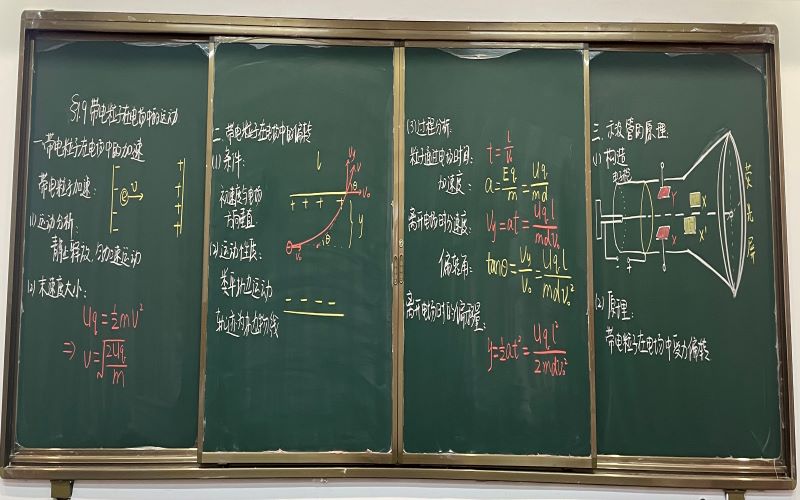 §1.9 带电粒子在电场中的运动
一.带电粒子在电场中的加速
带电粒子加速:
(1) 运动分析:
静止释放, 匀加速运动
(2) 末速度大小:
Uq = ½mv²
⇒ v = √(2Uq/m)
e v
- - - -
+ + + +
二、带电粒子在电场中的偏转
(1) 条件:
初速度与电场
方向垂直
(2) 运动性质:
类平抛运动
轨迹为抛物线
l
+ + + +
v₀
θ
y
- - - -
(3) 过程分析:
粒子通过电场时间: t = l/v₀
加速度: a = Eq/m = Uq/md
离开电场时分速度: Vy = at = Uql/mdv₀
偏转角: tanθ = Vy/V₀ = Uql/mdv₀²
离开电场时的偏移量:
y = ½at² = Uql²/2mdv₀²
三. 示波管的原理
(1) 构造
电子枪
- +
Y
Y'
X
X'
荧光屏
(2) 原理:
带电粒子在电场中受力偏转